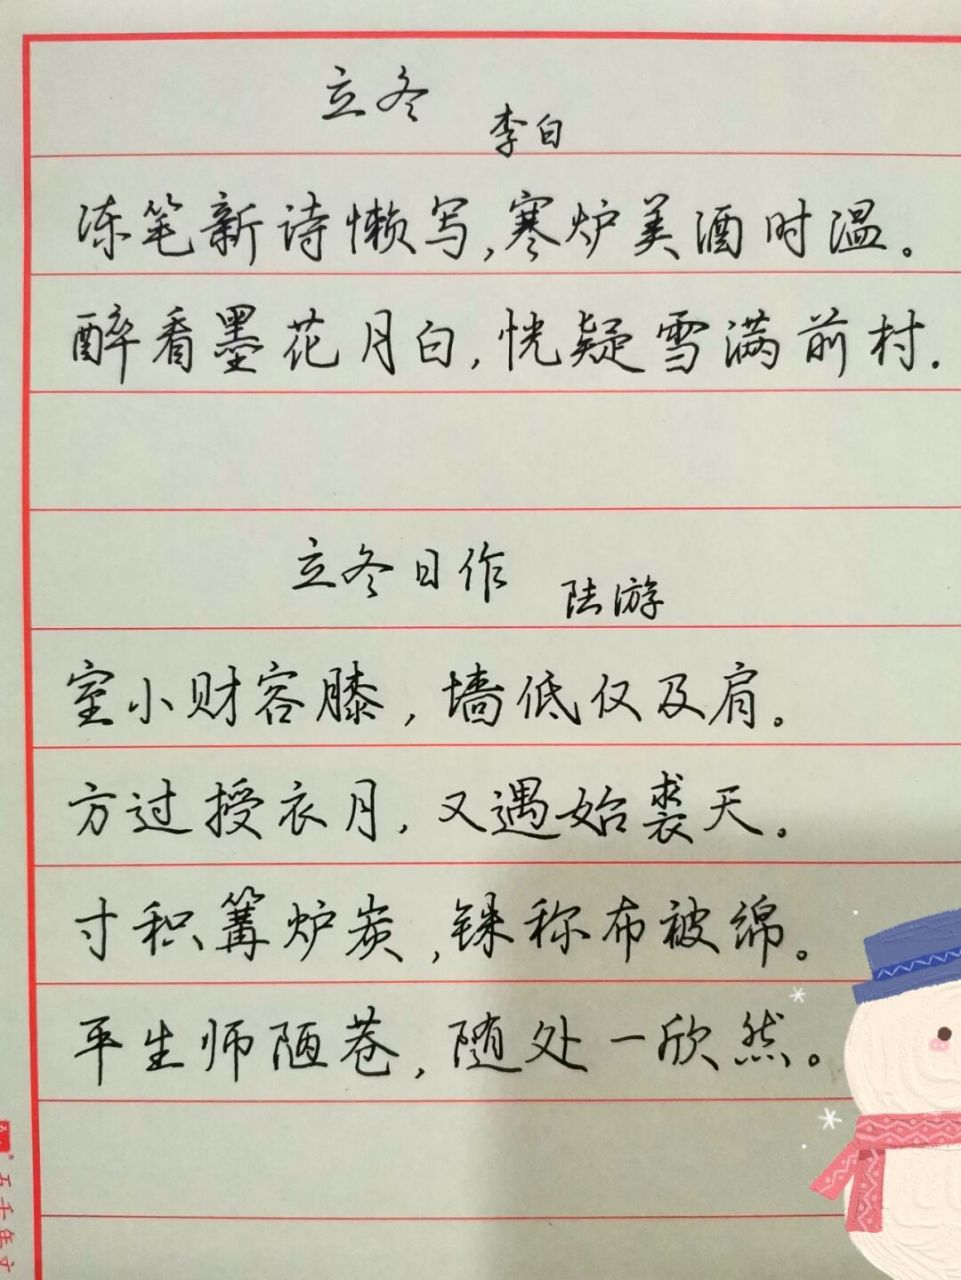 立冬
李白
冻笔新诗懒写,寒炉美酒时温。
醉看墨花月白,恍疑雪满前村.
立冬日作
陆游
室小财容膝,墙低仅及肩。
方过授衣月,又遇始裘天。
寸积篝炉炭,铢称布被绵。
平生师陋巷,随处一欣然。
五千年文